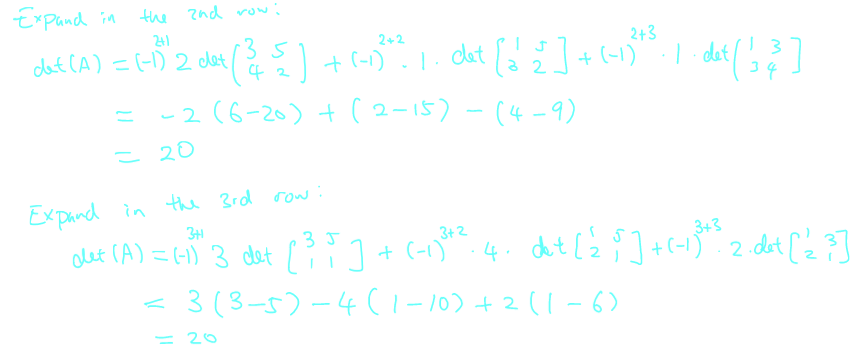 Expand in the 2nd row:
det(A) = (-1)^{2+1} 2 det [3 5; 4 2] + (-1)^{2+2} · 1 · det [1 5; 3 2] + (-1)^{2+3} · 1 · det [1 3; 3 4]
= -2 (6-20) + (2-15) - (4-9)
= 20
Expand in the 3rd row:
det(A) = (-1)^{3+1} 3 · det [3 5; 1 1] + (-1)^{3+2} · 4 · det [1 5; 2 1] + (-1)^{3+3} · 2 · det [1 3; 2 1]
= 3 (3-5) - 4 (1-10) + 2 (1-6)
= 20